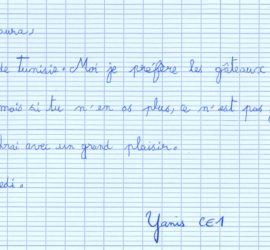 aura,
de Tunisie. Moi je préfère les gâteaux
mais si tu n'en as plus, ce n'est pas
drai avec un grand plaisir.
edi.
Yanis CE1